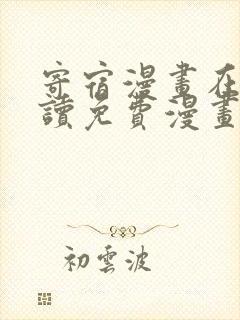 寄宿漫畫在
讀免費漫畫
初雲波